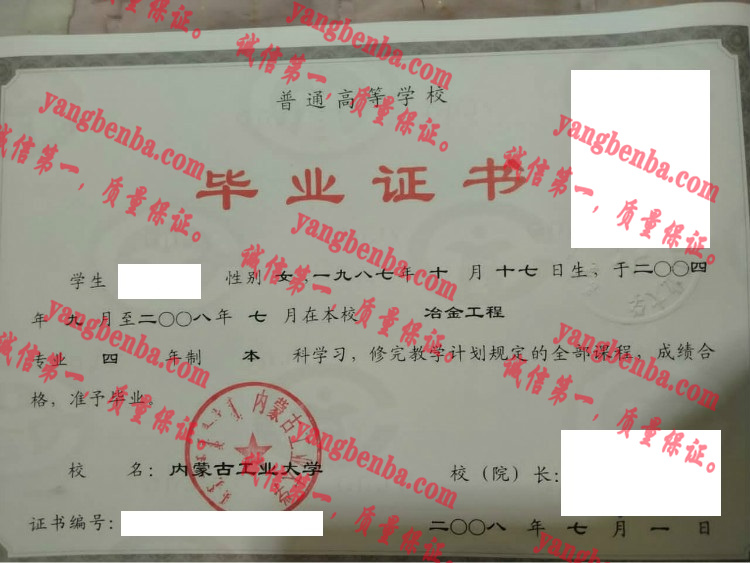 普通高等学校
毕业证书
学生 性别 女,一九八七年 十 月 十七 日生，于二〇〇四
年 九 月至二〇〇八年 七 月在本校 冶金工程
专业 四 年制 本 科学习，修完教学计划规定的全部课程，成绩合
格，准予毕业。
校 名：内蒙古工业大学 校（院）长：
证书编号：
二〇〇八 年 七 月 一 日
内蒙古工业大学
yangbenba.com
诚信第一，质量保证。
yangbenba.com
诚信第一，质量保证。
yangbenba.com
诚信第一，质量保证。
yangbenba.com
诚信第一，质量保证。
yangbenba.com
诚信第一，质量保证。
yangbenba.com
诚信第一，质量保证。
yangbenba.com
诚信第一，质量保证。
yangbenba.com
诚信第一，质量保证。
yangbenba.com
yangbenba.com